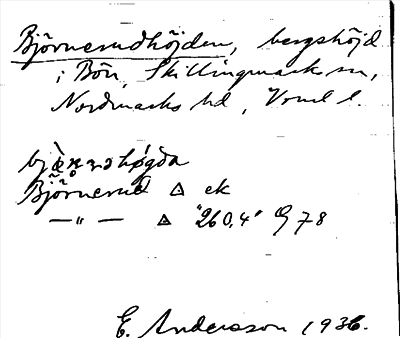 Björnerudhöjden, bergshöjd
i Bön, Skillingmarks sn,
Nordmarks hd, Vrml l.
Björnerud △ ek
— " — △ "260,4" G 78
E. Andersson 1936.